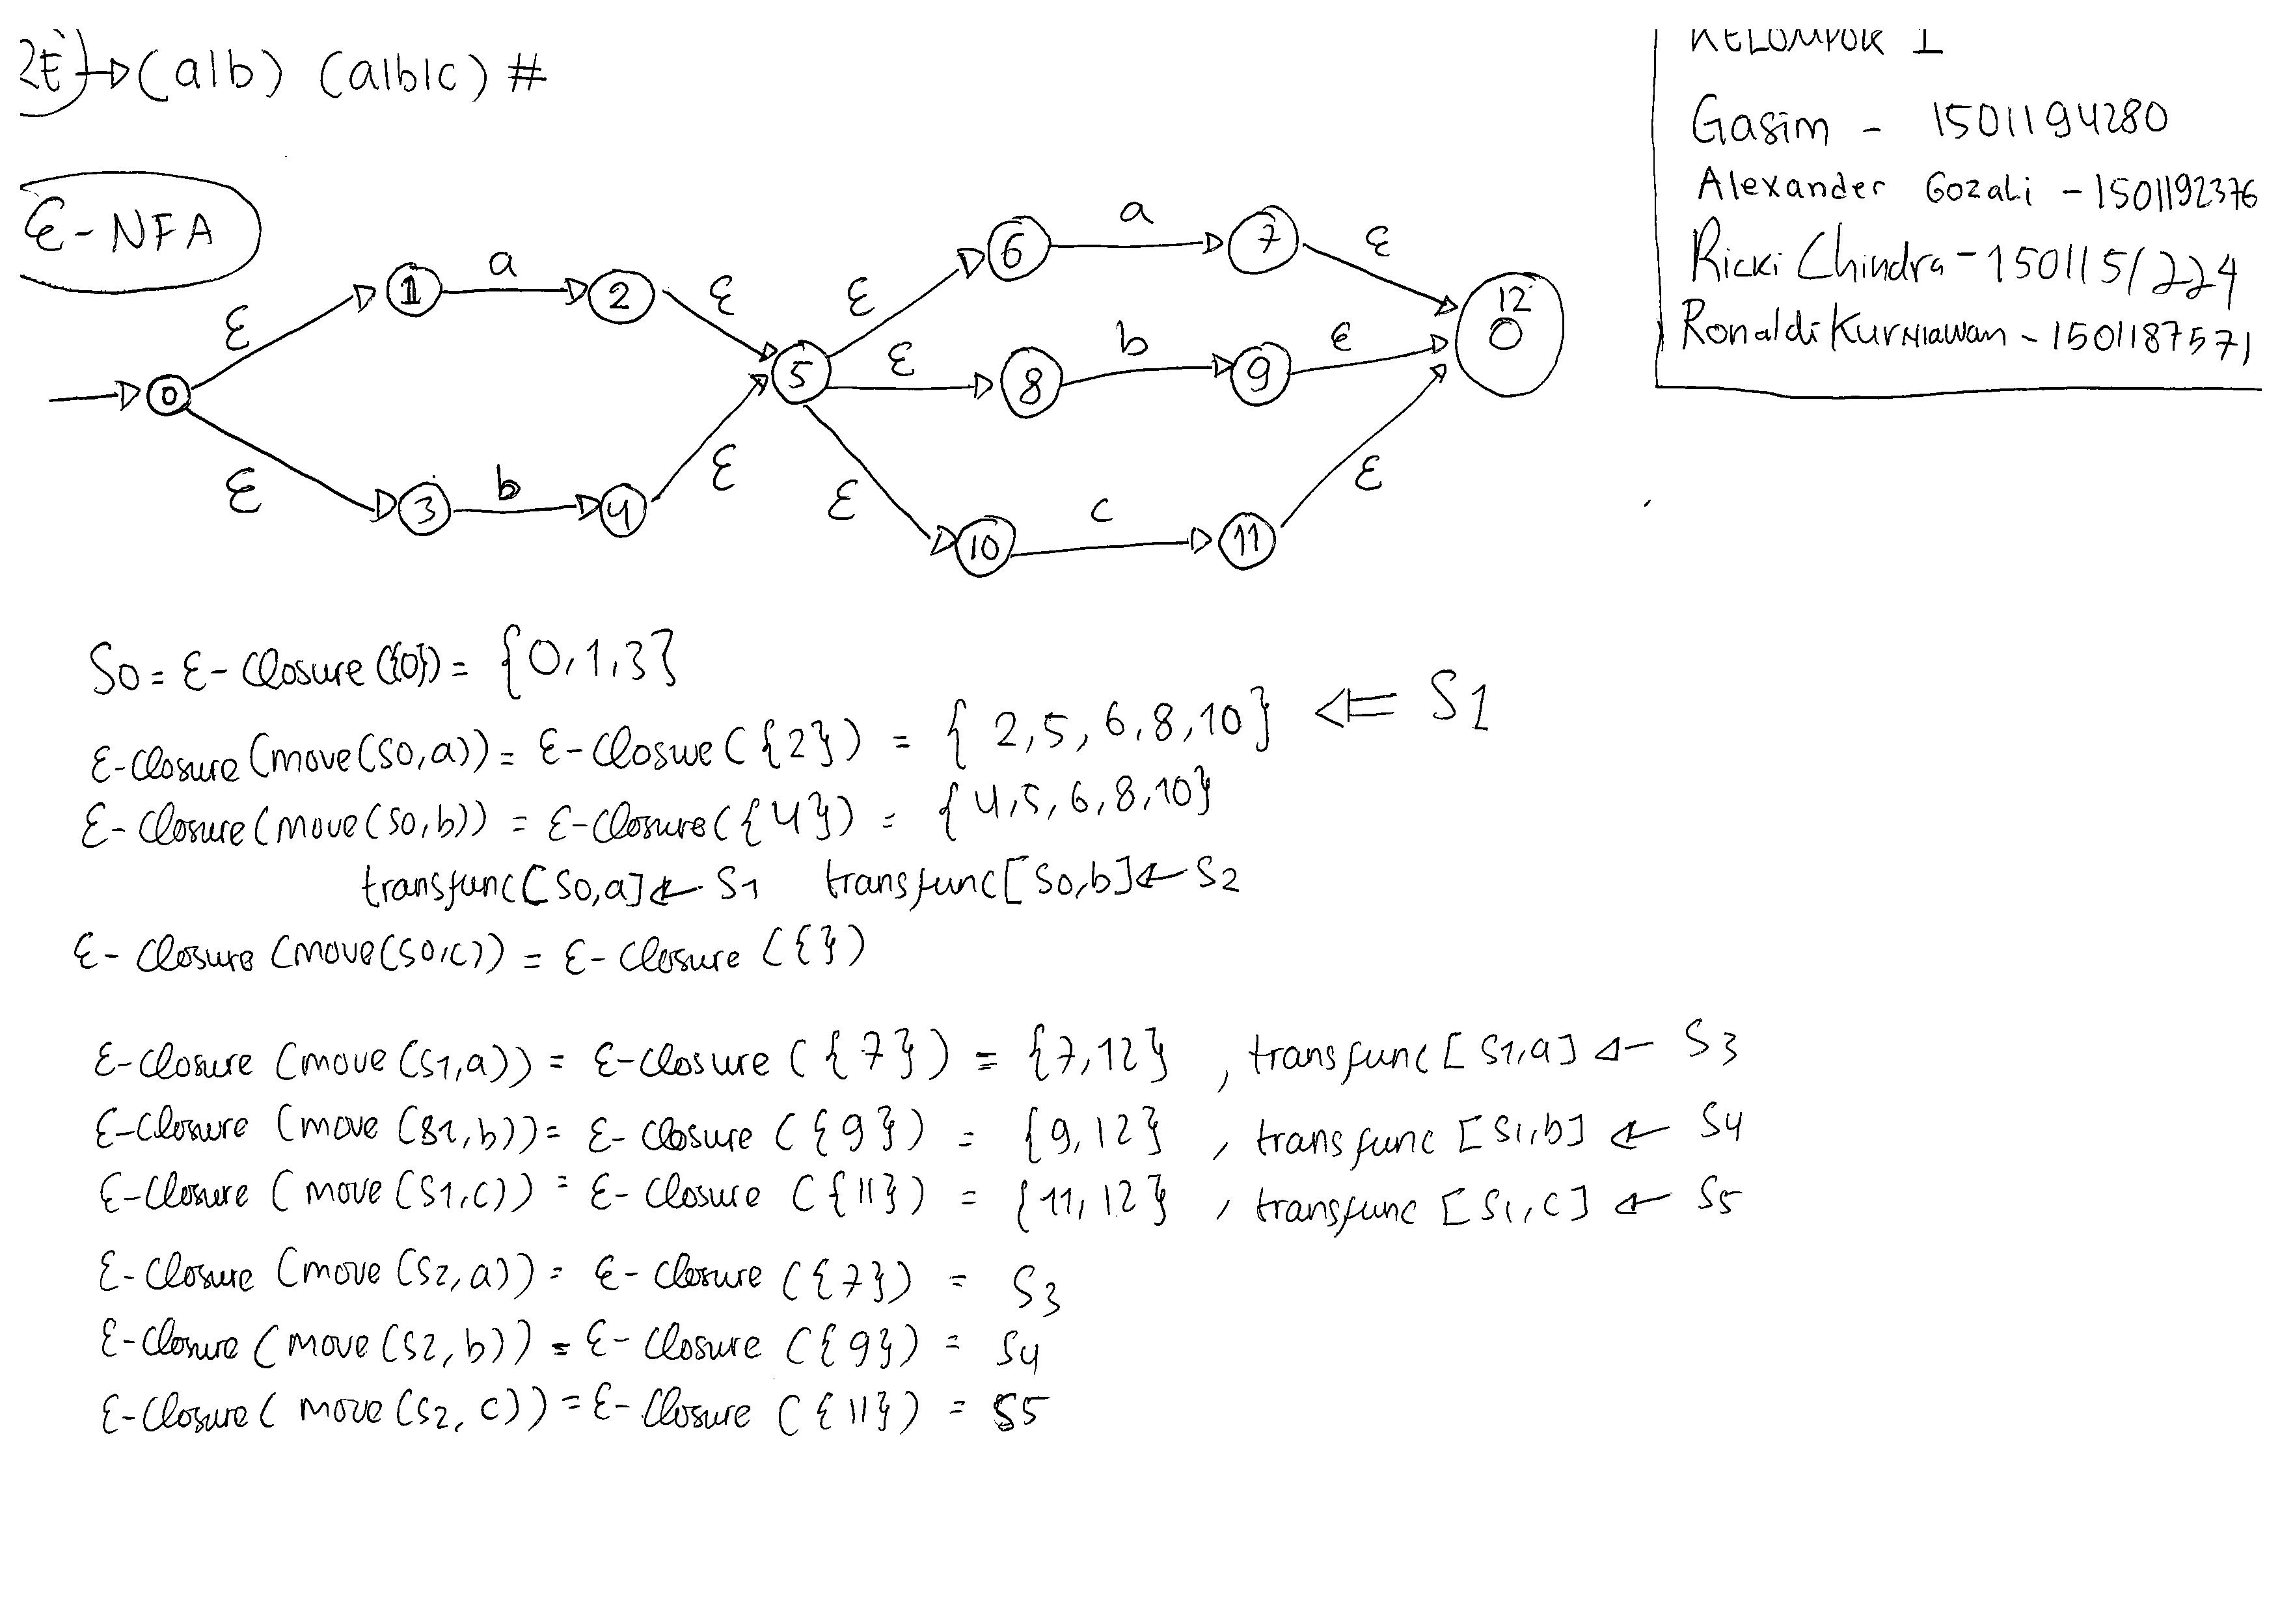 RE → (a|b) (a|b|c) #
KELOMPOK 1
Gasim - 1501194280
Alexander Gozali - 1501192376
Ricki Chindra - 1501151224
Ronaldi Kurniawan - 1501187571
ε-NFA
0 ε 1 a 2 ε 5 ε 6 a 7 ε 12
ε 8 b 9 ε
ε 3 b 4 ε ε 10 c 11 ε
S0 = ε-closure({0}) = {0,1,3}
ε-closure(move(S0,a)) = ε-closure({2}) = {2,5,6,8,10} ⇐ S1
ε-closure(move(S0,b)) = ε-closure({4}) = {4,5,6,8,10}
transfunc[S0,a] ← S1 transfunc[S0,b] ← S2
ε-closure(move(S0,c)) = ε-closure({})
ε-closure(move(S1,a)) = ε-closure({7}) = {7,12}, transfunc[S1,a] ← S3
ε-closure(move(S1,b)) = ε-closure({9}) = {9,12}, transfunc[S1,b] ← S4
ε-closure(move(S1,c)) = ε-closure({11}) = {11,12}, transfunc[S1,c] ← S5
ε-closure(move(S2,a)) = ε-closure({7}) = S3
ε-closure(move(S2,b)) = ε-closure({9}) = S4
ε-closure(move(S2,c)) = ε-closure({11}) = S5